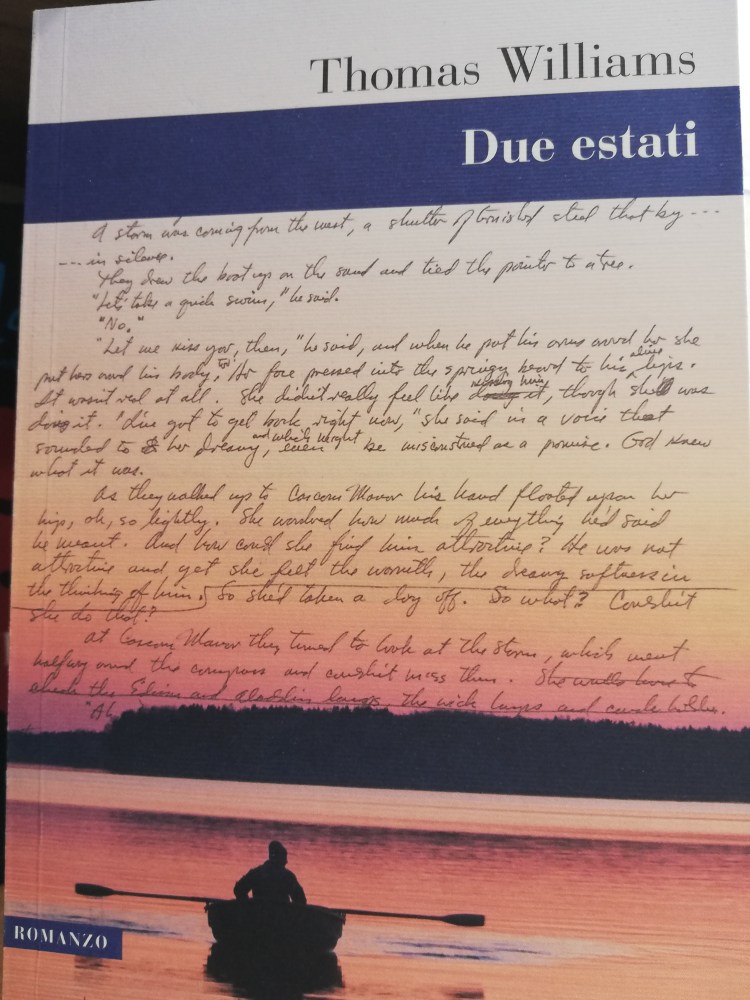 Thomas Williams
Due estati
A storm was coming from the west, a shutter of tarnished steel that by ---
--- in silence.
They drew the boat up on the sand and tied the painter to a tree.
"Let's take a quick swim," he said.
"No."
"Let me kiss you, then," he said, and when he put his arms around her she
put hers around his body, her face pressed into the springy beard to his alive lips.
It wasn't real at all. She didn't really feel like it, though she was
doing it. "I've got to get back, right now," she said in a voice that
sounded to her dreamy, and which might even be misconstrued as a promise. God knew
what it was.
As they walked up to Cascom Manor his hand floated upon her
hip, oh, so lightly. She wondered how much of everything he'd said
he meant. And how could she find him attractive? He was not
attractive and yet she felt the warmth, the dreamy softness in
the thinking of him. So she'd taken a day off. So what? Couldn't
she do that?
At Cascom Manor they turned to look at the storm, which went
halfway around the compass and couldn't miss them. She would have to
check the Edison and Aladdin lamps, the wick lamps and candle holders.
"Ah
ROMANZO